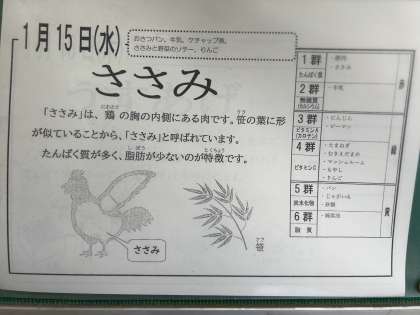 1月15日(水)
おさつパン、牛乳、ケチャップ煮、
ささみと野菜のソテー、りんご
ささみ
「ささみ」は、鶏の胸の内側にある肉です。笹の葉に形
が似ていることから、「ささみ」と呼ばれています。
たんぱく質が多く、脂肪が少ないのが特徴です。
ささみ
笹
1群
たんぱく質
・豚肉
・ささみ
2群
無機質
(カルシウム)
・牛乳
3群
ビタミンA
(カロテン)
・にんじん
・ピーマン
4群
ビタミンC
・たまねぎ
・むきえだまめ
・マッシュルーム
・もやし
・りんご
5群
炭水化物
・パン
・じゃがいも
・砂糖
6群
脂質
赤
緑
黄